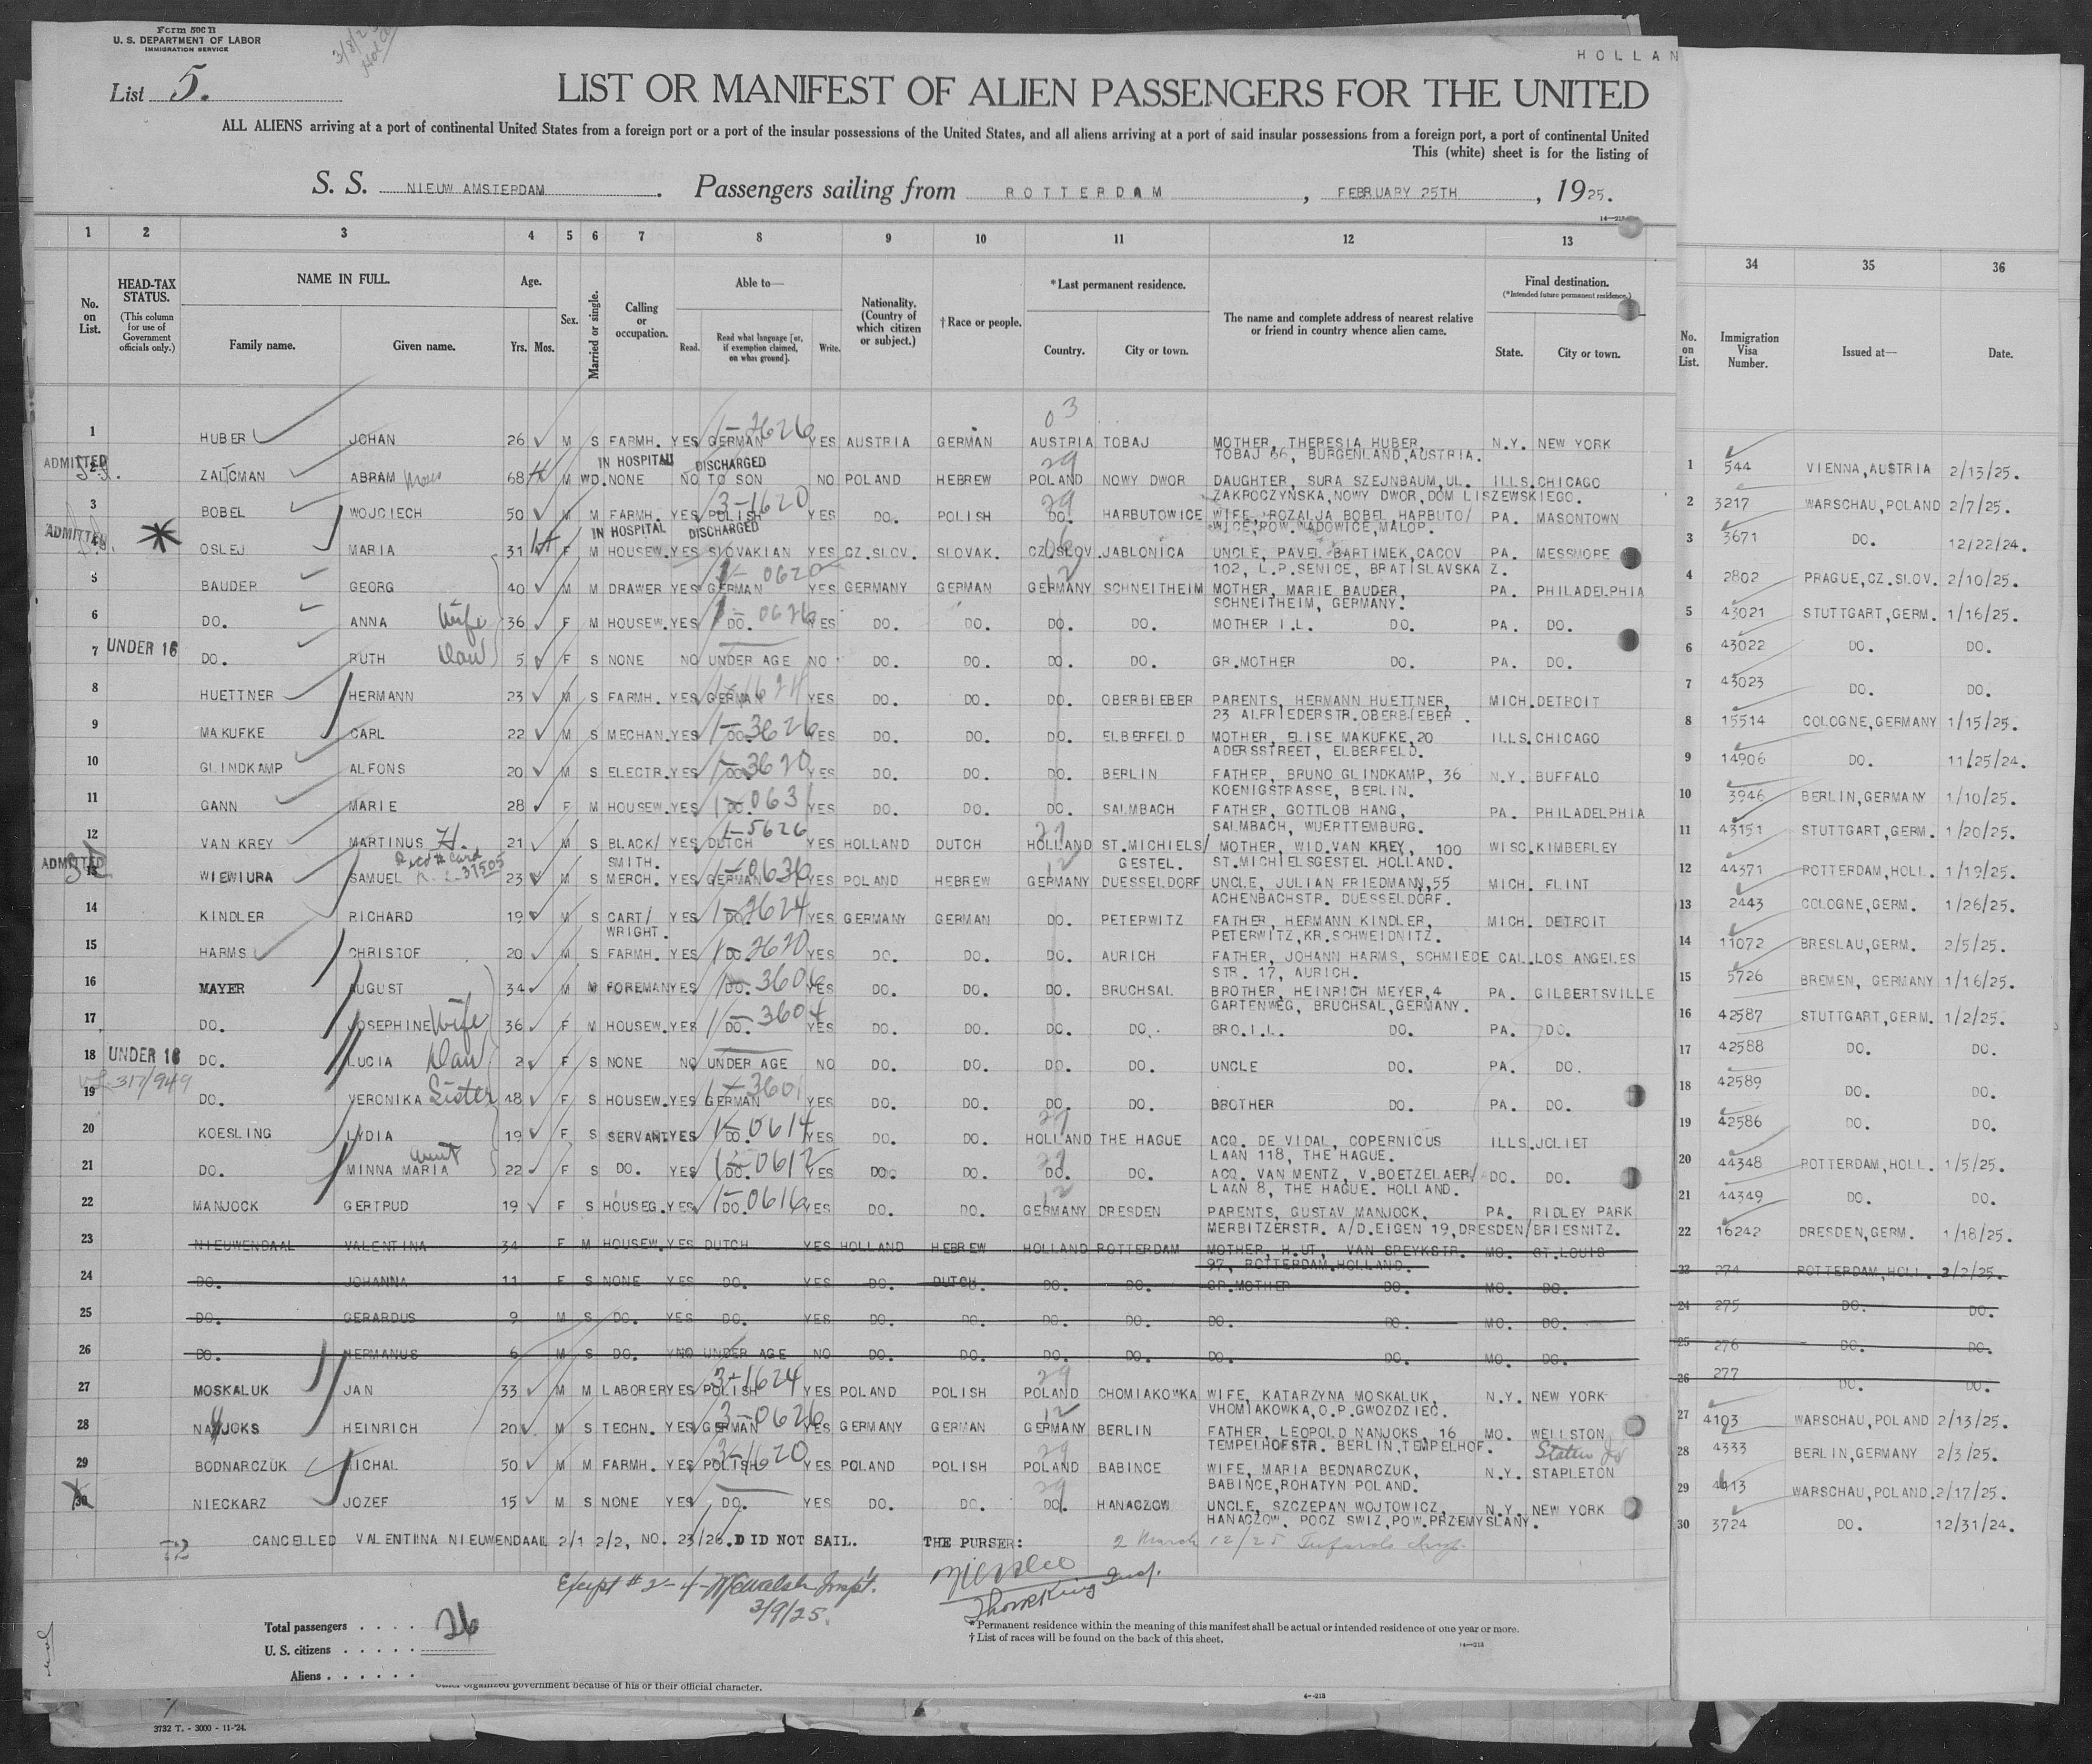 Form 500 B
U. S. DEPARTMENT OF LABOR
IMMIGRATION SERVICE
HOLLAN
List 5.
LIST OR MANIFEST OF ALIEN PASSENGERS FOR THE UNITED
ALL ALIENS arriving at a port of continental United States from a foreign port or a port of the insular possessions of the United States, and all aliens arriving at a port of said insular possessions from a foreign port, a port of continental United
This (white) sheet is for the listing of
S. S. NIEUW AMSTERDAM. Passengers sailing from ROTTERDAM, FEBRUARY 25TH, 1925.
1 2 3 4 5 6 7 8 9 10 11 12 13 34 35 36
No. on List. HEAD-TAX STATUS. (This column for use of Government officials only.) NAME IN FULL. Family name. Given name. Age. Yrs. Mos. Sex. Married or single. Calling or occupation. Able to— Read. Read what language [or, if exemption claimed, on what ground]. Write. Nationality. (Country of which citizen or subject.) †Race or people. *Last permanent residence. Country. City or town. The name and complete address of nearest relative or friend in country whence alien came. Final destination. (*Intended future permanent residence.) State. City or town.
No. on List. Immigration Visa Number. Issued at— Date.
1 HUBER JOHAN 26 M S FARMH. YES GERMAN 1-2626 YES AUSTRIA GERMAN AUSTRIA 03 TOBAJ MOTHER, THERESIA HUBER, N.Y. NEW YORK
TOBAJ 66, BURGENLAND, AUSTRIA.
ADMITTED IN HOSPITAL DISCHARGED
2 ZALTCMAN ABRAM Moses 68 M WD. NONE NO TO SON NO POLAND HEBREW POLAND 29 NOWY DWOR DAUGHTER, SURA SZEJNBAUM, UL. ILLS. CHICAGO
ZAKROCZYNSKA, NOWY DWOR, DOM LISZEWSKIEGO.
3 BOBEL WOJCIECH 50 M M FARMH. YES POLISH 3-1620 YES DO. POLISH DO. 29 HARBUTOWICE WIFE, ROZALJA BOBEL HARBUTO/ PA. MASONTOWN
WICE, POW. WADOWICE, MALOP.
ADMITTED IN HOSPITAL DISCHARGED
4 OSLEJ MARIA 31 F M HOUSEW. YES SLOVAKIAN YES CZ.SLOV. SLOVAK. CZ.SLOV. 06 JABLONICA UNCLE, PAVEL BARTIMEK, CACOV PA. MESSMORE
102, L.P. SENICE, BRATISLAVSKA Z.
5 BAUDER GEORG 40 M M DRAWER YES GERMAN 0620 YES GERMANY GERMAN GERMANY 12 SCHNEITHEIM MOTHER, MARIE BAUDER, PA. PHILADELPHIA
SCHNEITHEIM, GERMANY.
6 DO. ANNA Wife 36 F M HOUSEW. YES DO. 0626 YES DO. DO. DO. DO. MOTHER I.L. DO. PA. DO.
7 UNDER 16 DO. RUTH Dau 5 F S NONE NO UNDER AGE NO DO. DO. DO. DO. GR.MOTHER DO. PA. DO.
8 HUETTNER HERMANN 23 M S FARMH. YES GERMAN YES DO. DO. DO. OBERBIEBER PARENTS, HERMANN HUETTNER, MICH. DETROIT
23 ALFRIEDERSTR. OBERBIEBER.
9 MAKUFKE CARL 22 M S MECHAN. YES DO. 1-3626 YES DO. DO. DO. ELBERFELD MOTHER, ELISE MAKUFKE, 20 ILLS. CHICAGO
ADERSSTREET, ELBERFELD.
10 GLINDKAMP ALFONS 20 M S ELECTR. YES DO. 1-3620 YES DO. DO. DO. BERLIN FATHER, BRUNO GLINDKAMP, 36 N.Y. BUFFALO
KOENIGSTRASSE, BERLIN.
11 GANN MARIE 28 F M HOUSEW. YES DO. 1-0631 YES DO. DO. DO. SALMBACH FATHER, GOTTLOB HANG, PA. PHILADELPHIA
SALMBACH, WUERTTEMBURG.
12 VAN KREY MARTINUS H. 21 M S BLACK/ YES DUTCH 1-5626 YES HOLLAND DUTCH HOLLAND ST.MICHIELS/ MOTHER, WID. VAN KREY, 100 WISC. KIMBERLEY
SMITH. GESTEL. ST.MICHIELSGESTEL HOLLAND.
ADMITTED
13 WIEWIURA SAMUEL 23 M S MERCH. YES GERMAN 1-0636 YES POLAND HEBREW GERMANY 12 DUESSELDORF UNCLE, JULIAN FRIEDMANN, 55 MICH. FLINT
ACHENBACHSTR. DUESSELDORF.
14 KINDLER RICHARD 19 M S CART/ YES DO. 1-2624 YES GERMANY GERMAN DO. PETERWITZ FATHER, HERMANN KINDLER, MICH. DETROIT
WRIGHT. PETERWITZ, KR. SCHWEIDNITZ.
15 HARMS CHRISTOF 20 M S FARMH. YES DO. 1-2620 YES DO. DO. DO. AURICH FATHER, JOHANN HARMS, SCHMIEDE CAL. LOS ANGELES
STR. 17, AURICH.
16 MAYER AUGUST 34 M M FOREMAN YES DO. 1-3606 YES DO. DO. DO. BRUCHSAL BROTHER, HEINRICH MEYER, 4 PA. GILBERTSVILLE
GARTENWEG, BRUCHSAL, GERMANY.
17 DO. JOSEPHINE Wife 36 F M HOUSEW. YES DO. 1-3604 YES DO. DO. DO. DO. BRO.I.L. DO. PA. DO.
18 UNDER 16 DO. LUCIA Dau 2 F S NONE NO UNDER AGE NO DO. DO. DO. DO. UNCLE DO. PA. DO.
317/949
19 DO. VERONIKA Sister 48 F S HOUSEW. YES GERMAN 1-3601 YES DO. DO. DO. DO. BROTHER DO. PA. DO.
20 KOESLING LYDIA 19 F S SERVANT YES DO. 1-0614 YES DO. DO. HOLLAND THE HAGUE ACQ. DE VIDAL, COPERNICUS ILLS. JOLIET
LAAN 118, THE HAGUE.
21 DO. MINNA MARIA aunt 22 F S DO. YES DO. 1-0612 YES DO. DO. DO. DO. ACQ. VAN MENTZ, V. BOETZELAER/ DO. DO.
LAAN 8, THE HAGUE. HOLLAND.
22 MANJOCK GERTRUD 19 F S HOUSEG. YES DO. 1-0616 YES DO. DO. GERMANY 12 DRESDEN PARENTS, GUSTAV MANJOCK, PA. RIDLEY PARK
MERBITZERSTR. A/D.EIGEN 19, DRESDEN/BRIESNITZ.
23 NIEUWENDAAL VALENTINA 34 F M HOUSEW. YES DUTCH YES HOLLAND HEBREW HOLLAND ROTTERDAM MOTHER, H.UT, VAN SPEYKSTR. MO. ST.LOUIS
97, ROTTERDAM.HOLLAND.
24 DO. JOHANNA 11 F S NONE YES DO. YES DO. DUTCH. DO. DO. GR.MOTHER DO. MO. DO.
25 DO. GERARDUS 9 M S DO. YES DO. YES DO. DO. DO. DO. DO. DO. MO. DO.
26 DO. HERMANUS 6 M S DO. NO UNDER AGE NO DO. DO. DO. DO. DO. DO. MO. DO.
27 MOSKALUK JAN 33 M M LABORER YES POLISH 3-1624 YES POLAND POLISH POLAND 29 CHOMIAKOWKA WIFE, KATARZYNA MOSKALUK, N.Y. NEW YORK
VHOMIAKOWKA, O.P. GWOZDZIEC.
28 NANJOKS HEINRICH 20 M S TECHN. YES GERMAN 3-0626 YES GERMANY GERMAN GERMANY 12 BERLIN FATHER, LEOPOLD NANJOKS, 16 MO. WELLSTON
TEMPELHOFSTR. BERLIN, TEMPELHOF.
29 BODNARCZUK MICHAL 50 M M FARMH. YES POLISH 3-1620 YES POLAND POLISH POLAND 29 BABINCE WIFE, MARIA BEDNARCZUK, N.Y. STAPLETON Staten Is
BABINCE, ROHATYN POLAND.
30 NIECKARZ JOZEF 15 M S NONE YES DO. YES DO. DO. DO. 29 HANACZOW UNCLE, SZCZEPAN WOJTOWICZ, N.Y. NEW YORK
HANACZOW. POCZ SWIZ, POW. PRZEMYSLANY.
1 544 VIENNA, AUSTRIA 2/13/25.
2 3217 WARSCHAU, POLAND 2/7/25.
3 3671 DO. 12/22/24.
4 2802 PRAGUE, CZ.SLOV. 2/10/25.
5 43021 STUTTGART, GERM. 1/16/25.
6 43022 DO. DO.
7 43023 DO. DO.
8 15514 COLOGNE, GERMANY 1/15/25.
9 14906 DO. 11/25/24.
10 3946 BERLIN, GERMANY 1/10/25.
11 43151 STUTTGART, GERM. 1/20/25.
12 44371 ROTTERDAM, HOLL. 1/19/25.
13 2443 COLOGNE, GERM. 1/26/25.
14 11072 BRESLAU, GERM. 2/5/25.
15 5726 BREMEN, GERMANY 1/16/25.
16 42587 STUTTGART, GERM. 1/2/25.
17 42588 DO. DO.
18 42589 DO. DO.
19 42586 DO. DO.
20 44348 ROTTERDAM, HOLL. 1/5/25.
21 44349 DO. DO.
22 16242 DRESDEN, GERM. 1/18/25.
23 274 ROTTERDAM, HOLL. 2/2/25.
24 275 DO. DO.
25 276 DO. DO.
26 277 DO. DO.
27 4103 WARSCHAU, POLAND 2/13/25.
28 4333 BERLIN, GERMANY 2/3/25.
29 4413 WARSCHAU, POLAND. 2/17/25.
30 3724 DO. 12/31/24.
CANCELLED VALENTINA NIEUWENDAAL 2/1 2/2, NO. 23/26. DID NOT SAIL. THE PURSER:
2 March 12/25
Except # 2-4- Inspt.
3/9/25.
Total passengers . . . . 26
U. S. citizens . . . . .
Aliens . . . . . .
*Permanent residence within the meaning of this manifest shall be actual or intended residence of one year or more.
†List of races will be found on the back of this sheet.
14—213
other organized government because of his or their official character.
4—213
3732 T. - 3000 - 11-'24.